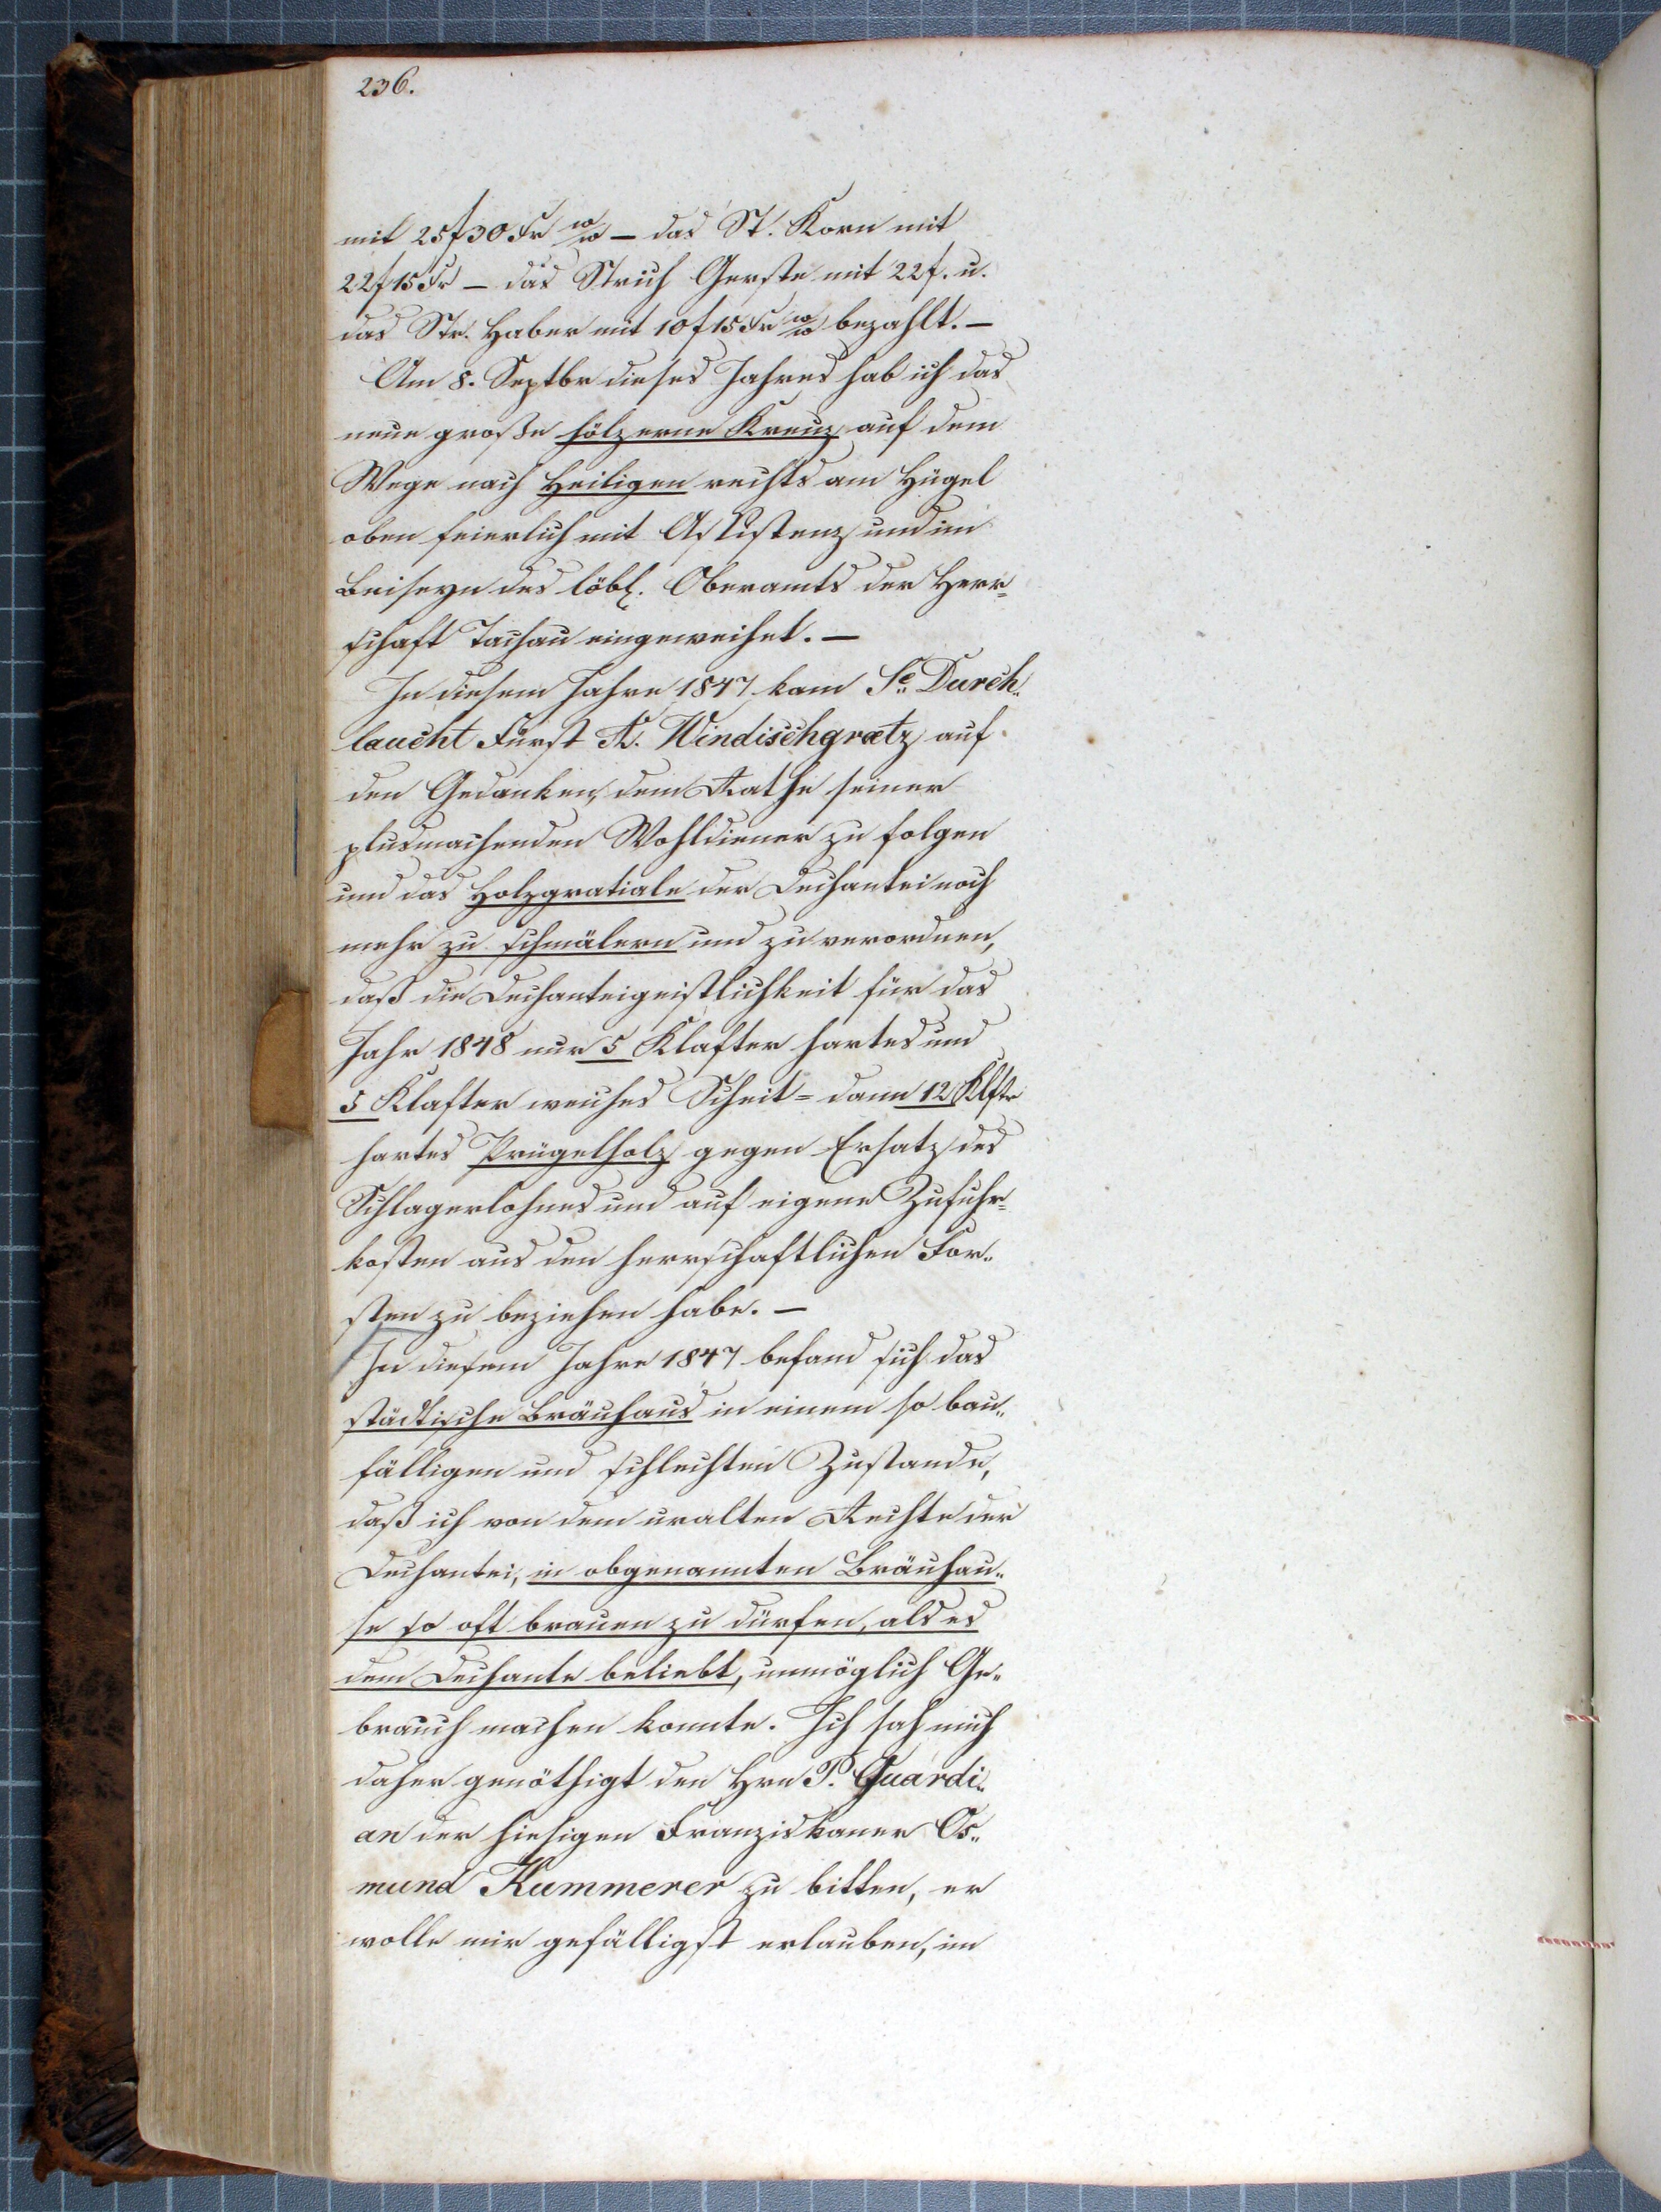 236.
mit 25f 30 Kr W/W – das St. Korn mit
22f 15 Kr – das Strich Gerste mit 22f. u.
das Str. Haber mit 10f 15 Kr W/W bezahlt. –
Am 8. Septbr dieses Jahres hab ich das
neue große hölzerne Kreuz auf dem
Wege nach Heiligen rechts am Hügel
oben feierlich mit Assistenz und im
Beiseyn des löbl. Oberamts der Herr=
schaft Tachau eingeweihet. –
In diesem Jahre 1847 kam Se. Durch„
laucht Fürst A. Windischgraetz auf
den Gedanken, dem Rathe seiner
plusmachenden Wohldiener zu folgen
und das Holzgratiale der Dechantei noch
mehr zu schmälern und zu verordnen,
daß die Dechanteigeistlichkeit für das
Jahr 1848 nur 5 Klafter hartes und
5 Klafter weiches Scheit= dann 12 Klftr
hartes Prügelholz gegen Ersatz des
Schlagerlohnes und auf eigene Zufuhr=
kosten aus den herrschaftlichen For„
sten zu beziehen habe. –
In diesem Jahre 1847 befand sich das
städtische Bräuhaus in einem so bau„
fälligen und schlechten Zustande,
daß ich von dem uralten Rechte der
Dechantei, in obgenannten Bräuhau„
se so oft brauen zu dürfen, als es
dem Dechante beliebt, unmöglich Ge„
brauch machen konnte. Ich sah mich
daher genöthigt den Hrn P. Guardi„
an der hiesigen Franziskaner Os„
mund Kummerer zu bitten, er
wolle mir gefälligst erlauben, im